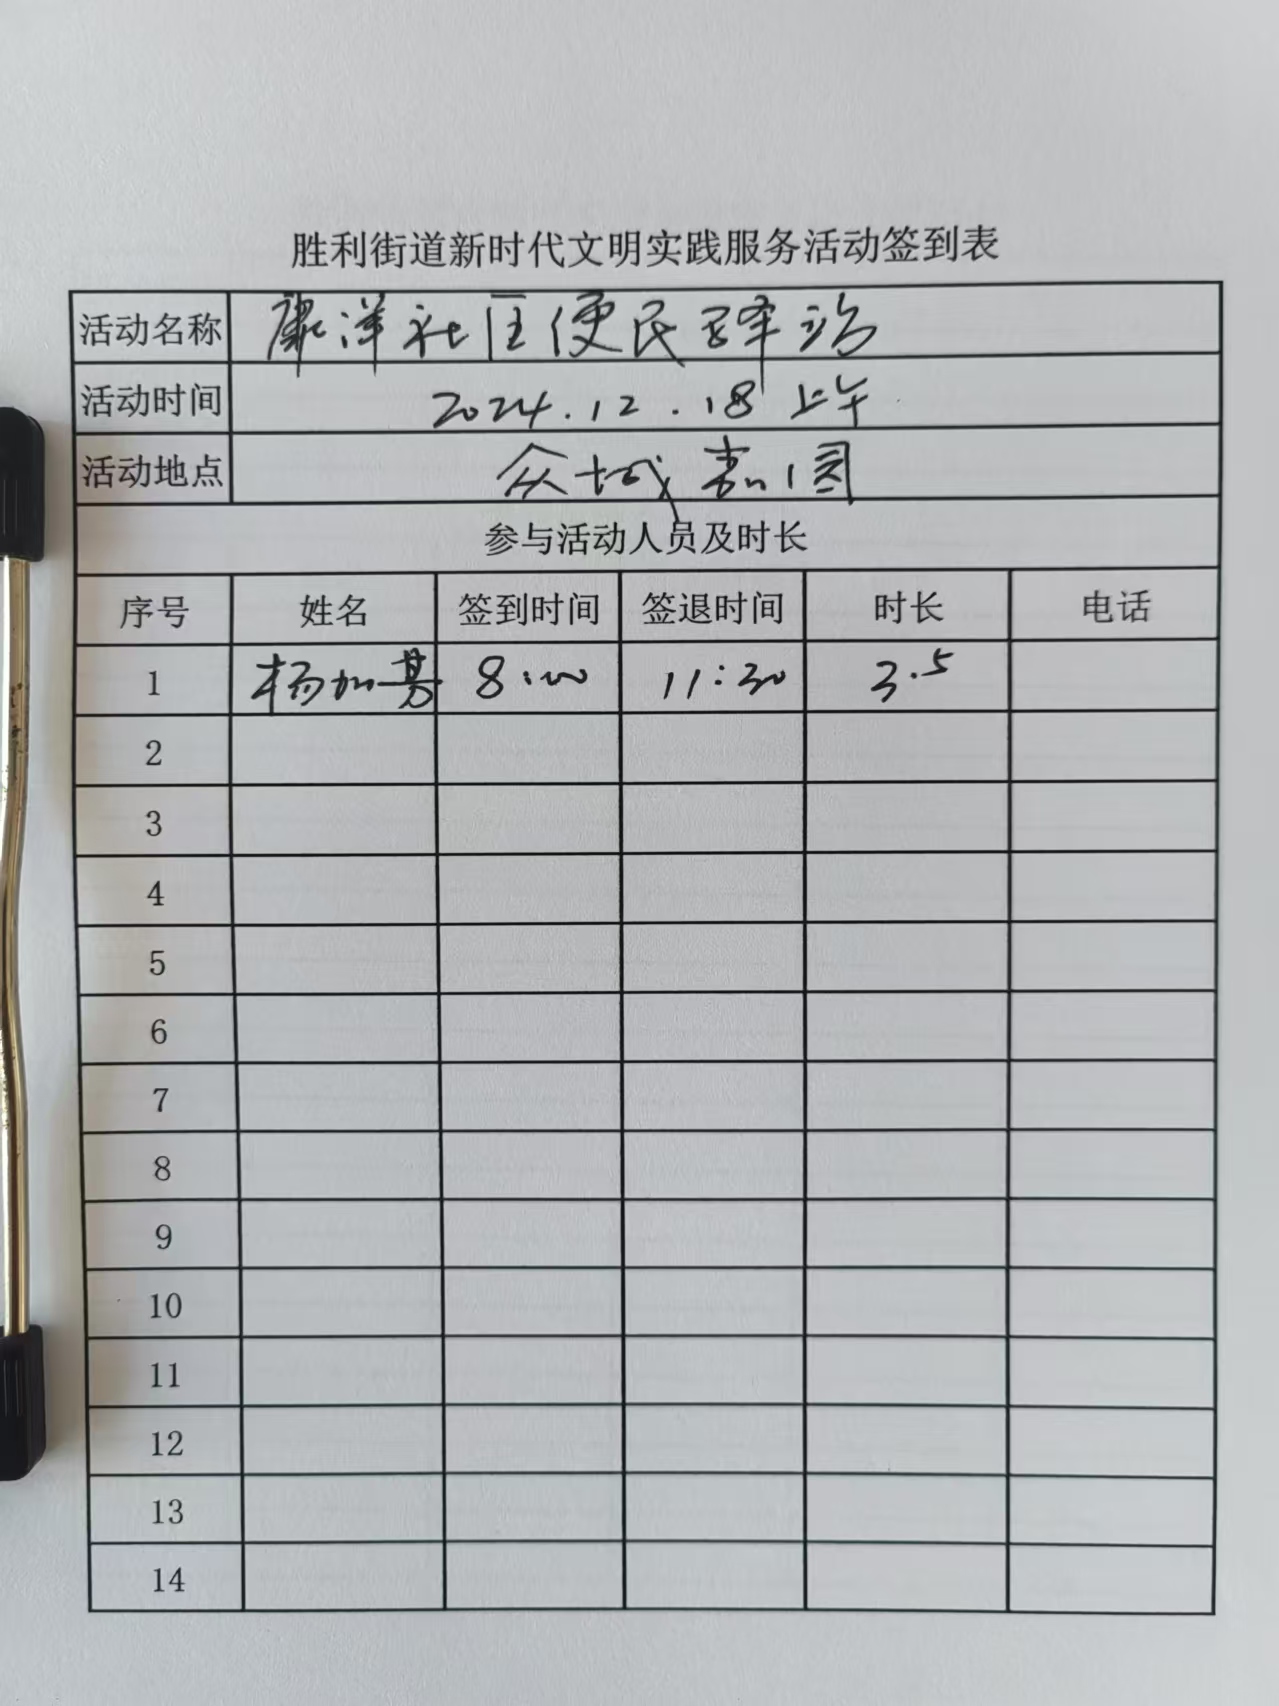 胜利街道新时代文明实践服务活动签到表
活动名称 康洋社区便民驿站
活动时间 2024.12.18 上午
活动地点 众城嘉园
参与活动人员及时长
序号 姓名 签到时间 签退时间 时长 电话
1 杨加 8:00 11:30 3.5
2
3
4
5
6
7
8
9
10
11
12
13
14